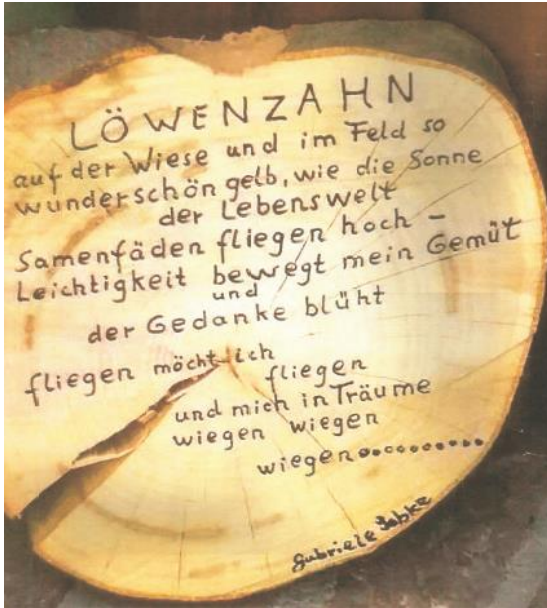 LÖWENZAHN
auf der Wiese und im Feld so
wunderschön gelb, wie die Sonne
der Lebenswelt
Samenfäden fliegen hoch –
Leichtigkeit bewegt mein Gemüt
und
der Gedanke blüht
fliegen möcht ich
fliegen
und mich in Träume
wiegen wiegen
wiegen...........
Gabriele